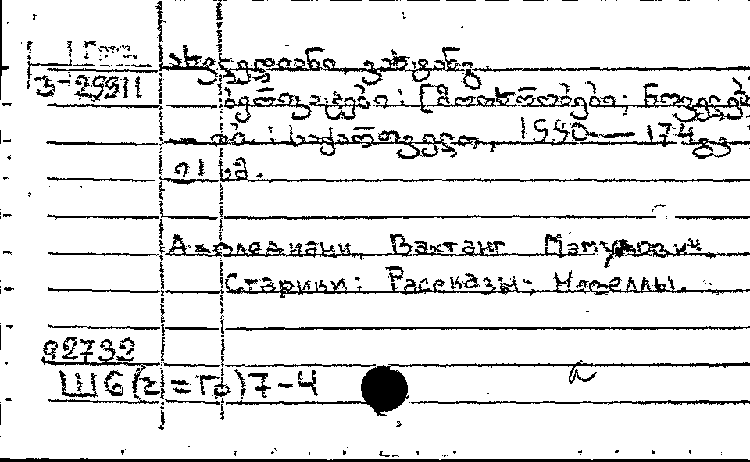 Груз.
3-29911
ახვლედიანი ვახტანგ
ბერიკაცები: [მოთხრობები; ნოველებ
— თბ.: საქართველო, 1990 — 174 გვ
21 სმ.
Ахвледиани, Вахтанг Мамукович
Старики: Рассказы; Новеллы.
92732
Ш6(2=Го)7-4
а